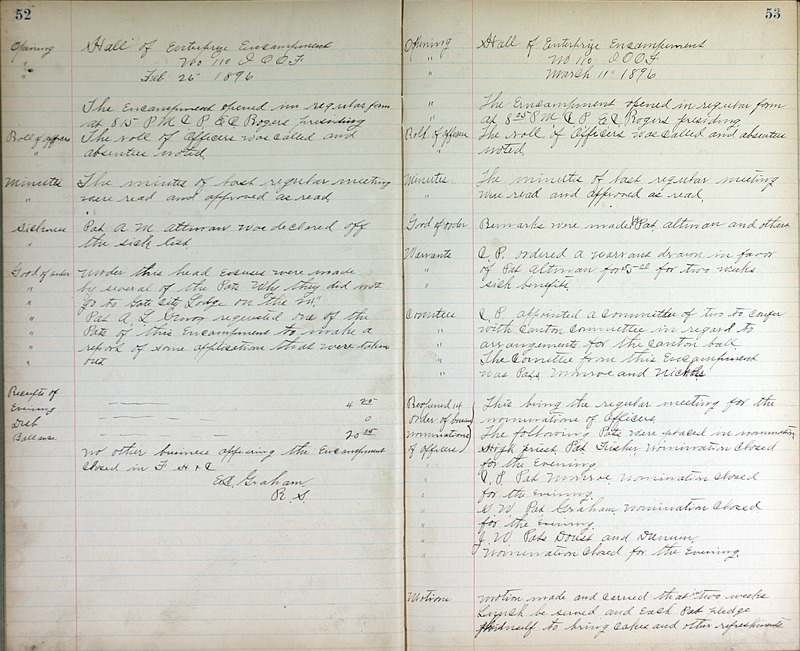 52
Opening Hall of Enterprize Encampment
" No 110 I O O F
" Feb 26" 1896
The Encampment opened in regular form
at 8.5- P M C P E C Rogers presiding
Roll of officers The roll of officers was called and
" absentees noted
Minutes The minutes of last regular meeting
" were read and approved as read
Sickness Pat A M Altman was declared off
" the sick list
Good of order Under this head excuses were made
" by several of the Pats why they did not
" go to Gate City Lodge on the
" Pat A. L. requested one of the
" Pats of this Encampment to make a
" report of some application that were taken
" out
Receipts of
Evening 4 25
Debt 0
Balance 20 15
no other business appearing the Encampment
closed in F H & C
E C Graham
R. S.
53
Opening Hall of Enterprize Encampment
" No 110 I O O F
" March 11" 1896
" The Encampment opened in regular form
" at 8 25 P M C P E C Rogers presiding
Roll of officers The roll of officers was called and absentees
" noted.
Minutes The minutes of last regular meeting
" were read and approved as read.
Good of order Remarks were made by Pat. Altman and others
Warrants C. P. ordered a warrant drawn in favor
" of Pat Altman for 5 00 for two weeks
" sick benefits
Comittee C. P. appointed a Committee of two to confer
" with Canton Committee in regard to
" arrangements for the Canton ball
" The Comittee from this Encampment
" was Pats Munroe and Nichols
Reopened 14 This being the regular meeting for the
order of business nominations of Officers
nominations The following Pats were placed in nomination
of officers High priest Pat Fisher Nomination Closed
" for the Evening.
" C. P. Pat Munroe, Nomination Closed
" for the evening.
" S. W. Pat Graham Nomination Closed
" for the Evening
" J. W. Pats and
" Nomination Closed for the Evening.
Motions Motion made and carried that in two weeks
Lunch be served and Each Pat pledge
himself to bring Cakes and other refreshments